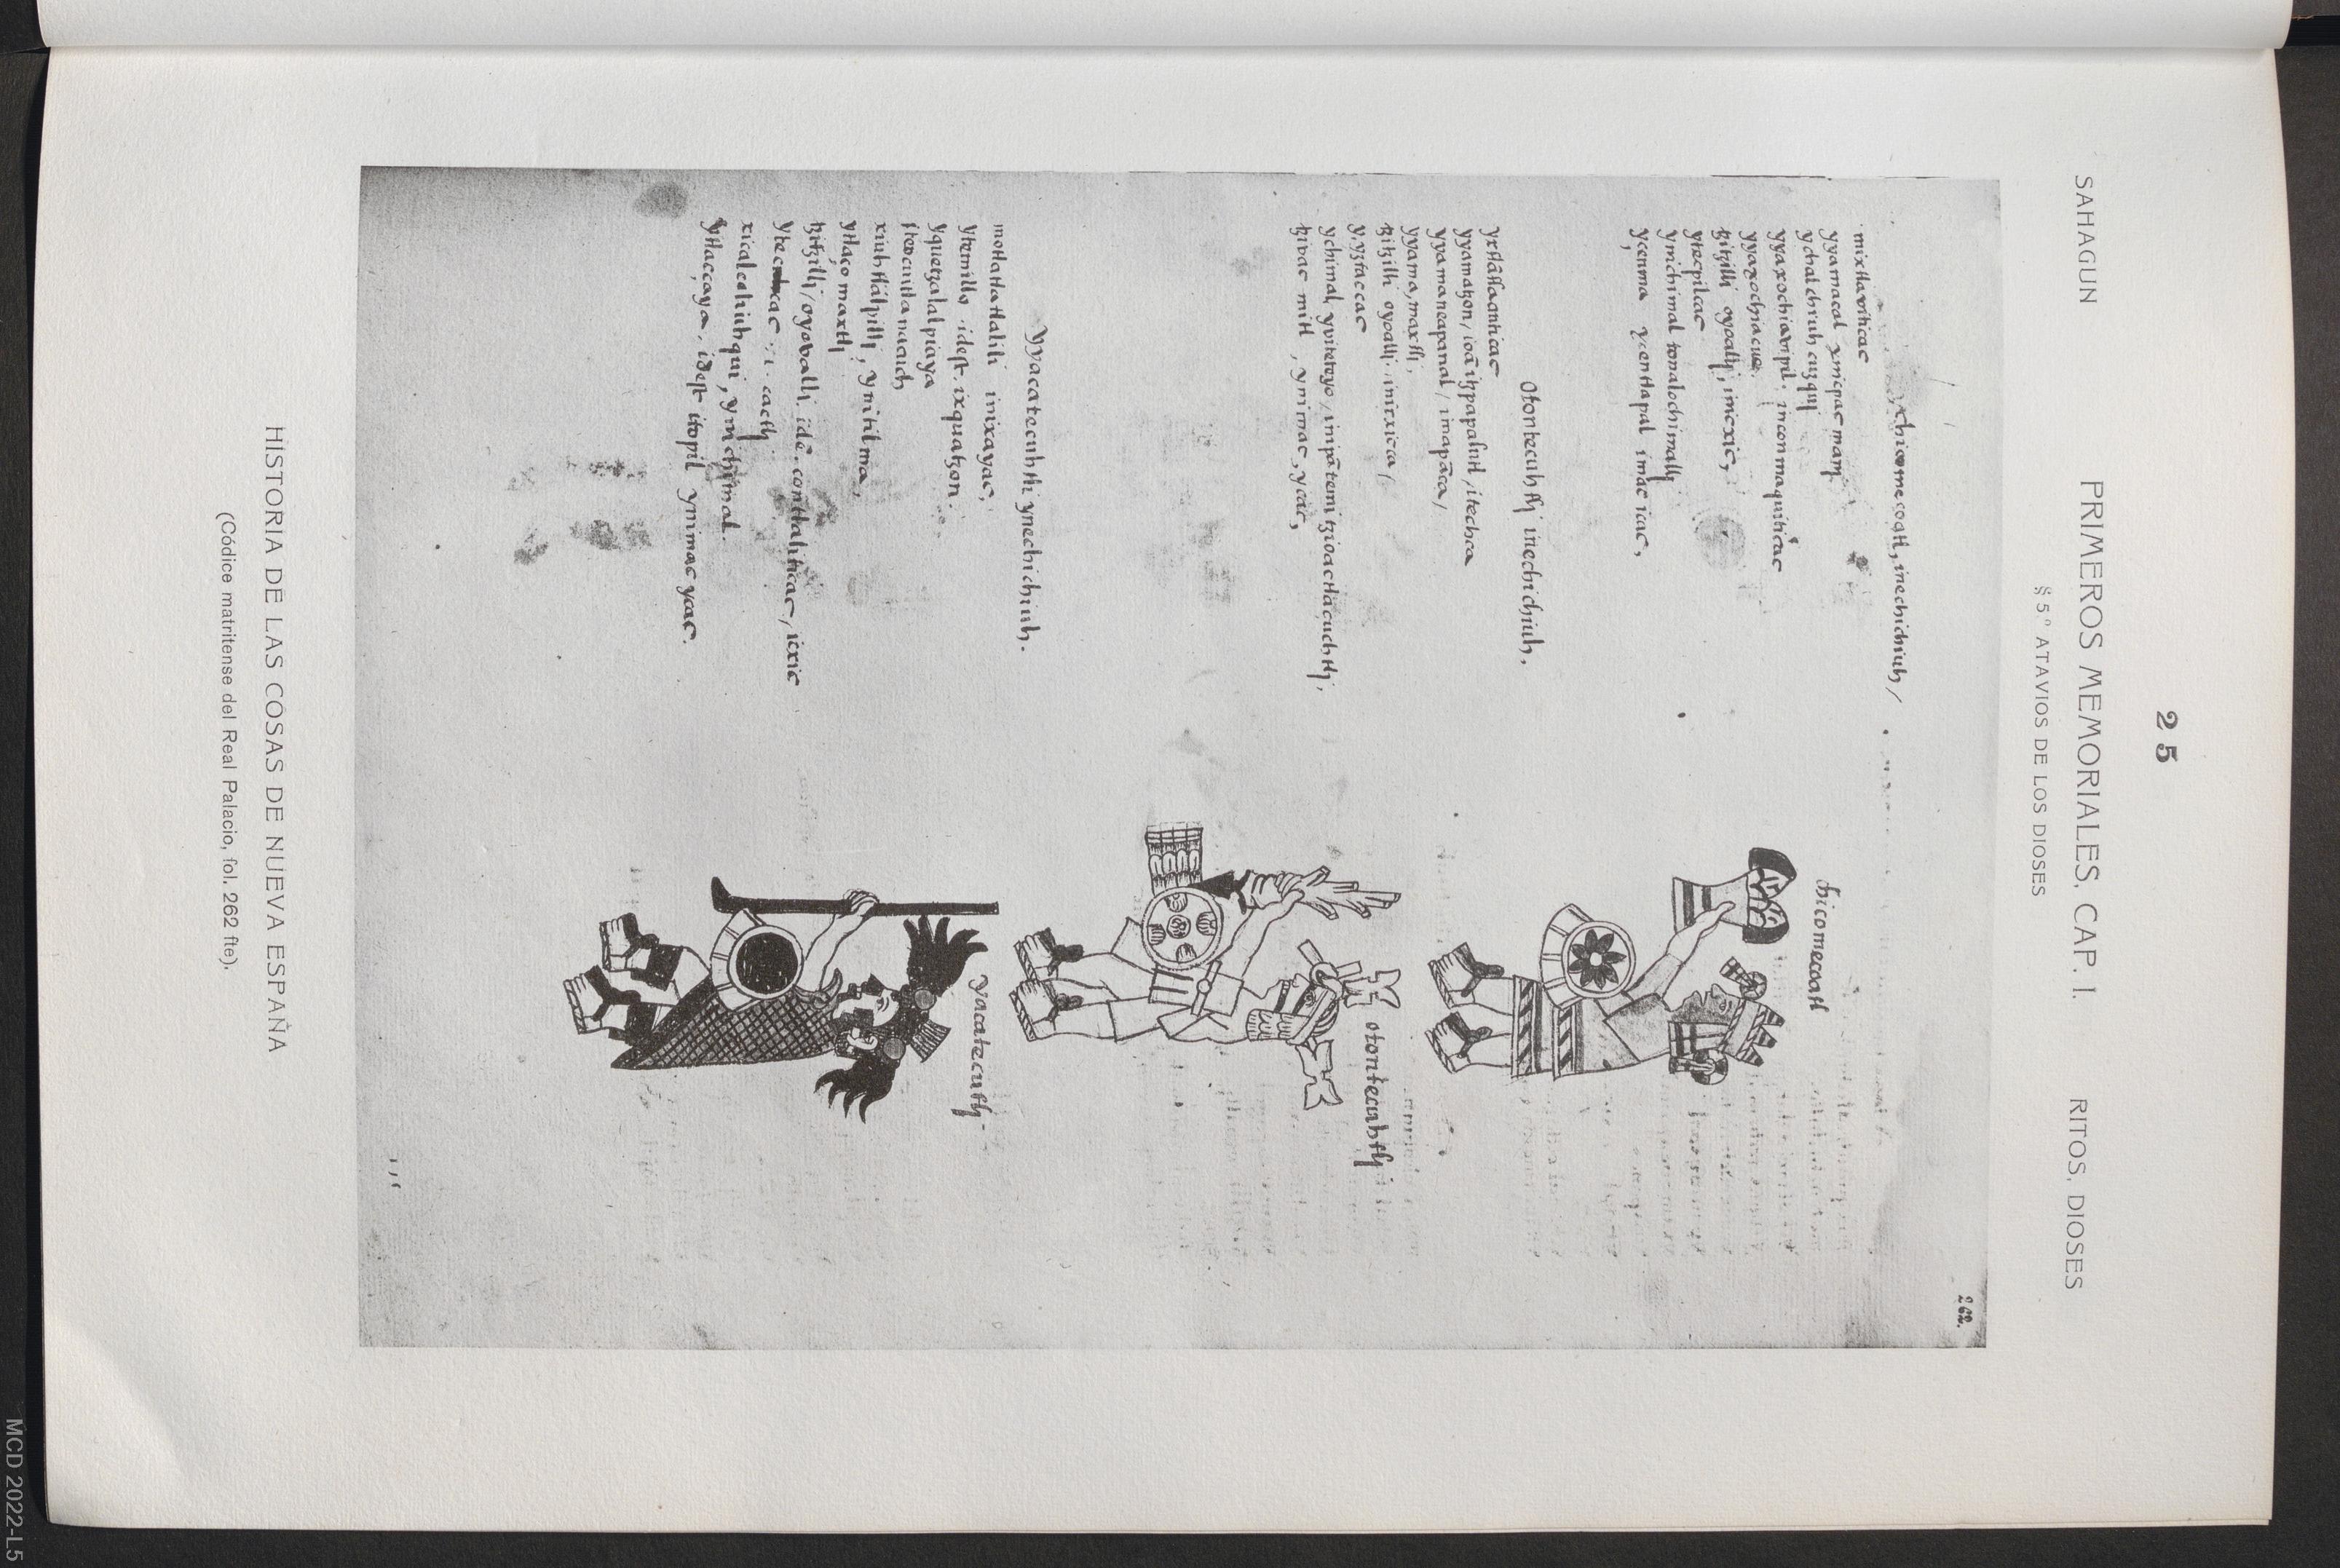 25
SAHAGUN PRIMEROS MEMORIALES, CAP. I. RITOS, DIOSES
§ 5.º ATAVIOS DE LOS DIOSES
262.
chicomecoatl, inechichiuh /
mixtlavíticac
yyamacal ynicpac mani
ychalchiuh cuzqui
yyaxochiavipil, inconmaquiticac
yyaxochiacue,
tzitzilli oyoalli, inicxic,
ytecpilcac
ynichimal tonalochimalli
ycenma ycentlapal imac icac,
chicomecoatl
Otontecuhtli inechichiuh.
yxtlatlaanticac
yyamatzon, ioã itzpapalutl, itechca
yyamaneapanal / imapãca /
yyama, maxtli,
tzitzilli oyoalli, inicxica /
y, yztaccac
ychimal, yviteteyo / inipã temi tzioactlacuchtli,
tzivac mitl, ynimac, ycac,
otontecuhtli
Yyacatecuhtli ynechichiuh.
motlatlatlalili inixayac,
ytemillo .idest. ixquatzon.
yquetzalalpiaya
steocuitlanacauch
xiuhtlalpilli, ynitilma,
ytlaço maxtli
tzitzilli / oyovalli ide. contlaliticac, icxic
xicalcoliuhqui, ynichimal.
ytlacçaya, idest itopil ynimac ycac.
yacatecutli-
HISTORIA DE LAS COSAS DE NUEVA ESPAÑA
(Códice matritense del Real Palacio, fol. 262 fte).
MCD 2022-L5